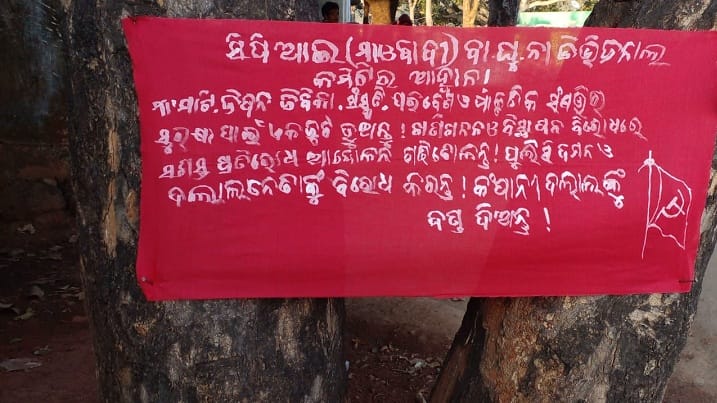 ସିପିଆଇ (ମାଓବାଦୀ) ବା.ଘୁ.ନା ଡିଭିଜନାଲ
କମିଟିର ଆହ୍ୱାନ।
ଜଂଗଲ, ଜମିନ ଜିବିକା, ସଂସ୍କୃତି, ପରିବେଶ ଓ
ସୁରକ୍ଷା ପାଇଁ ଏକଜୁଟ ହୁଅନ୍ତୁ! ଖଣିଖନନ ଓ ବିସ୍ଥାପନ ବିରୋଧରେ
ସଶସ୍ତ୍ର ପ୍ରତିରୋଧ ଆନ୍ଦୋଳନ ଗଢ଼ିତୋଳନ୍ତୁ! ପୁଲିସି ଦମନ ଓ
ଦଲାଲ ନେତାଙ୍କୁ ବିରୋଧ କରନ୍ତୁ! କଂପାନୀ ଦଲାଲଙ୍କୁ
ଦଣ୍ଡ ଦିଅନ୍ତୁ!